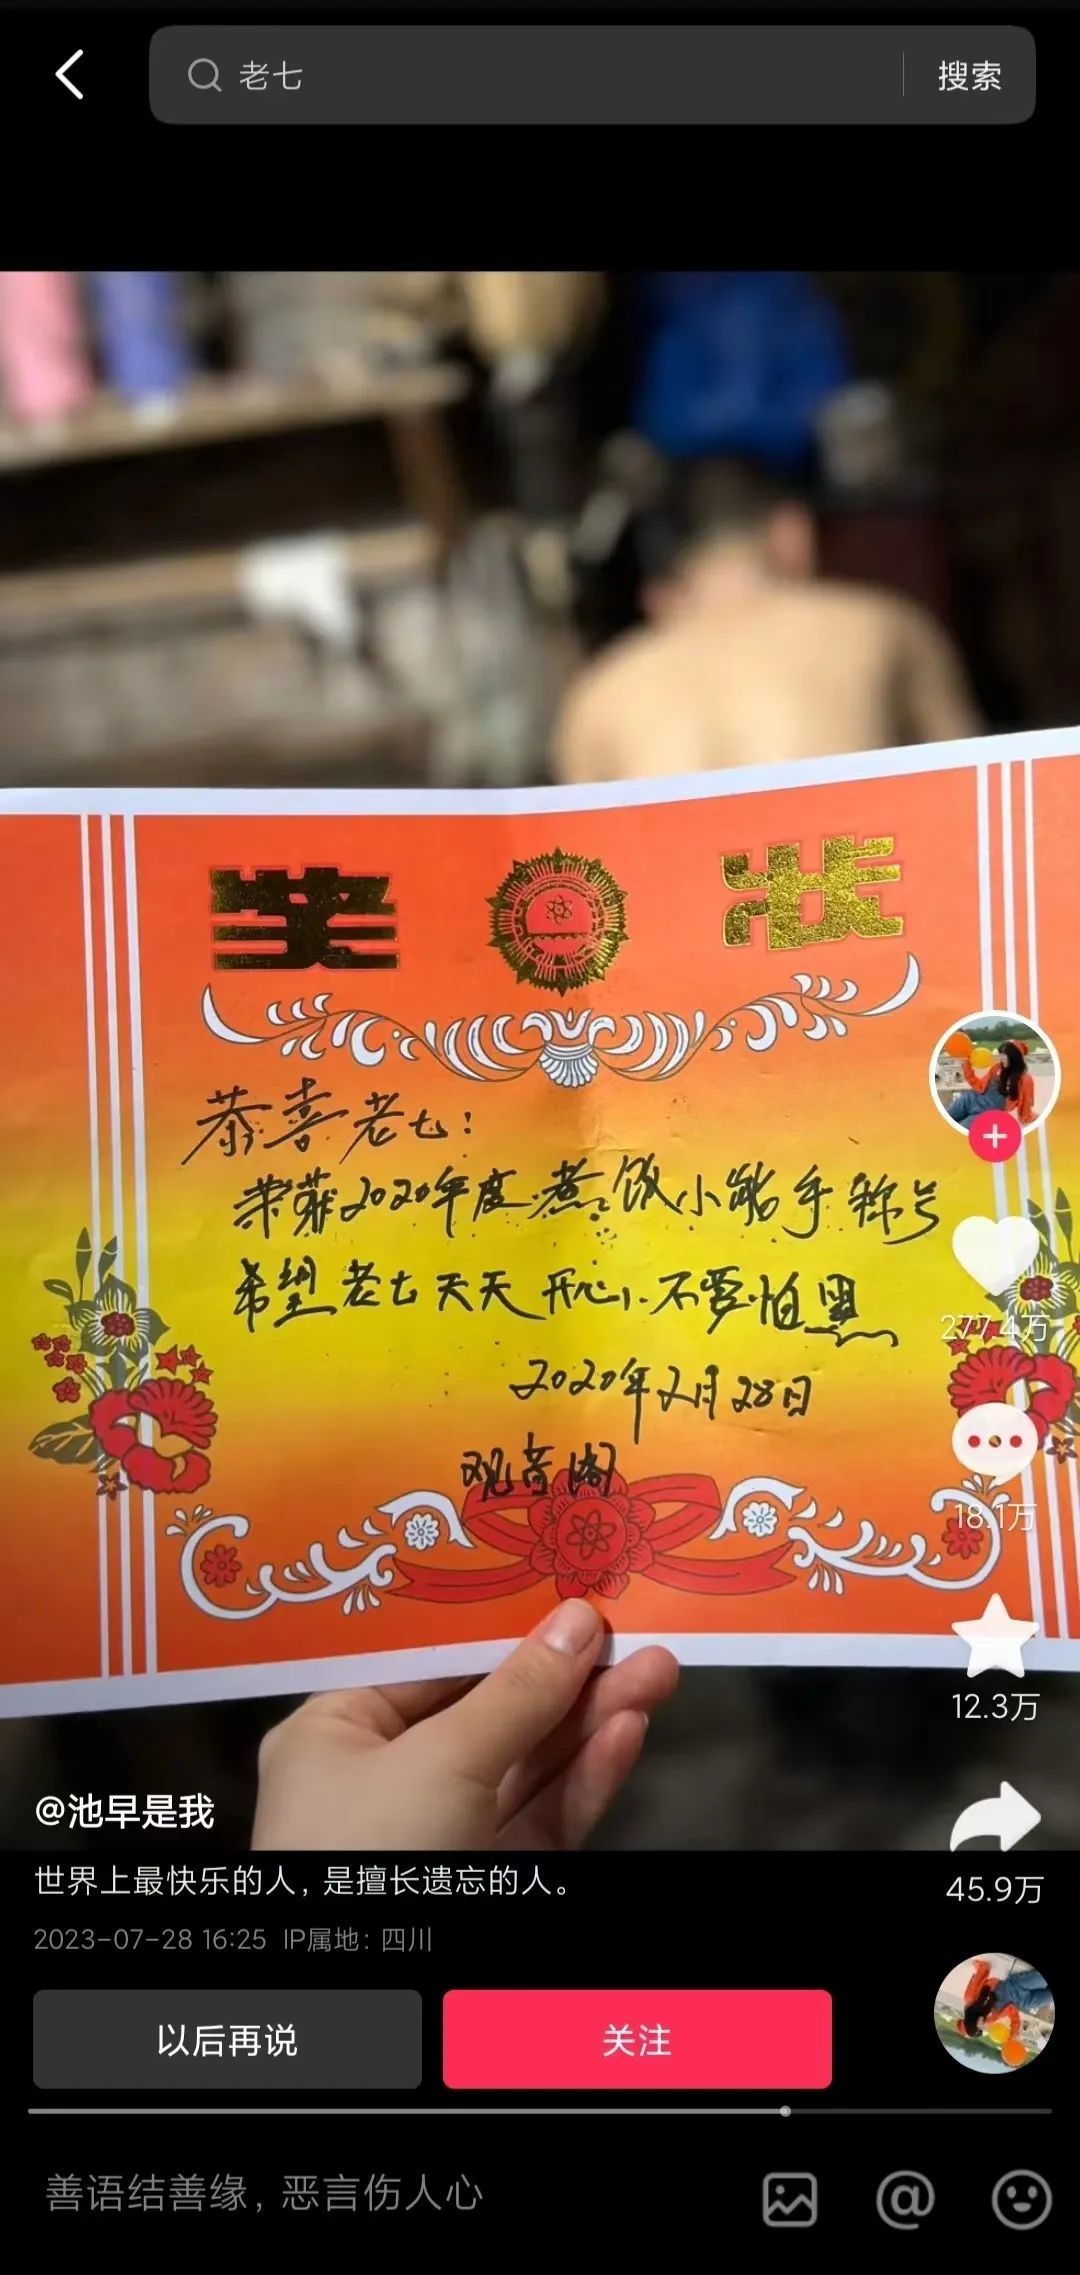 老七
搜索
奖状
恭喜老七：
荣获2020年度煮饭小能手称号
希望老七天天开心、不要怕黑
2020年2月28日
观音阁
277.4万
18.1万
12.3万
45.9万
@池早是我
世界上最快乐的人，是擅长遗忘的人。
2023-07-28 16:25 IP属地：四川
以后再说
关注
善语结善缘，恶言伤人心